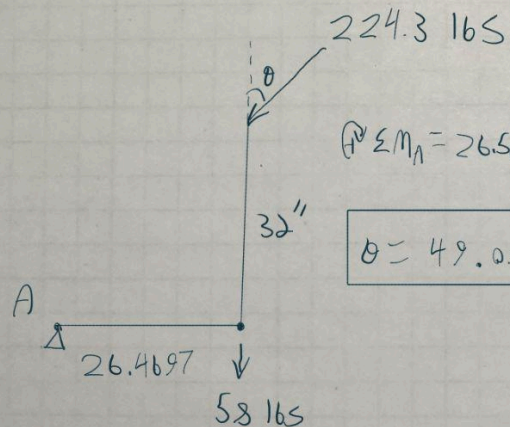 224.3 lbs
θ
+ ΣM_A = 26.5
32"
θ = 49.0
A
26.4697
58 lbs